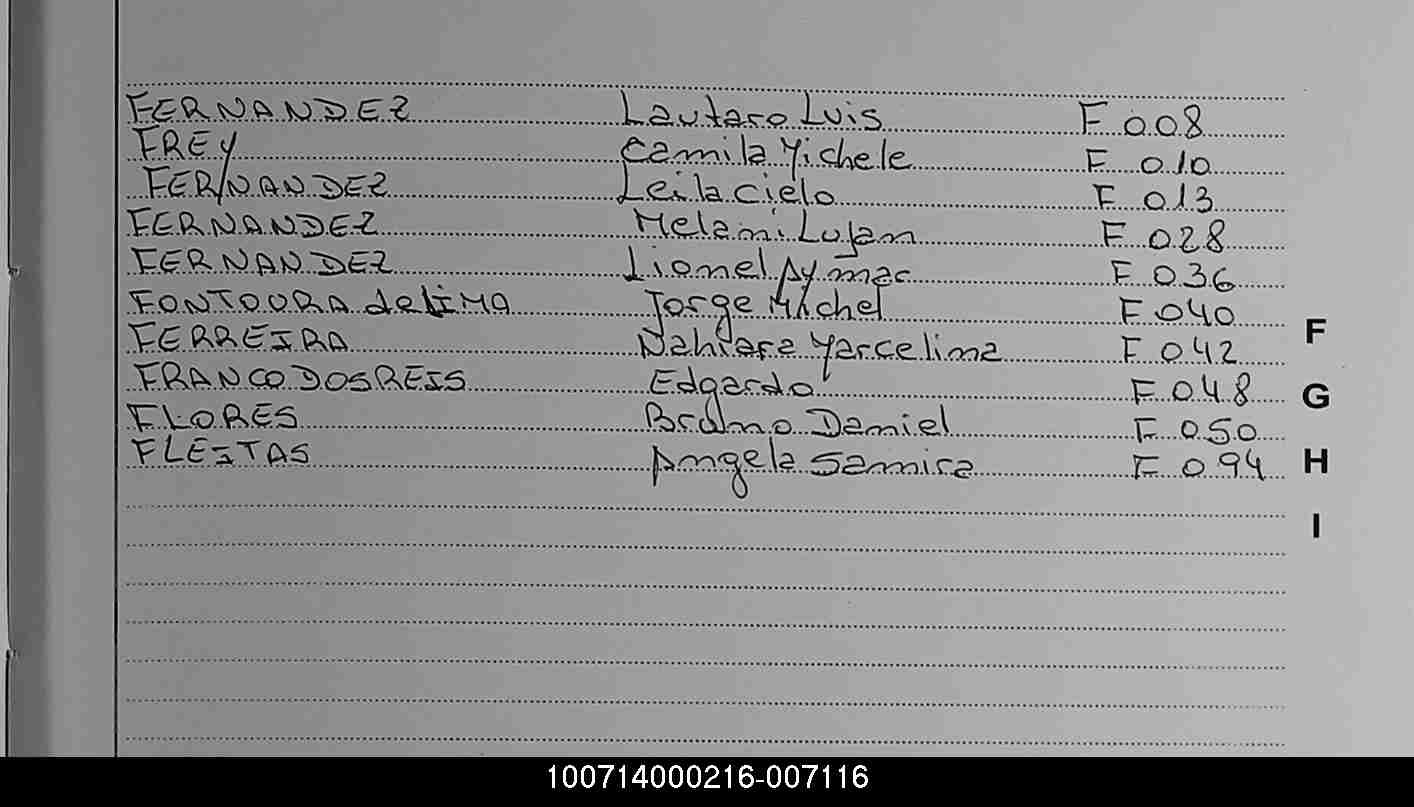 FERNANDEZ Lautaro Luis F 008
FREY Camila Michele F 010
FERNANDEZ Leila Cielo F 013
FERNANDEZ Melani Lujan F 028
FERNANDEZ Lionel Aymac F 036
FONTOURA de LIMA Jorge Michel F 040
FERREIRA Nahiara Marcelina F 042
FRANCO DOS REIS Edgardo F 048
FLORES Bruno Daniel F 050
FLEITAS Angela Samira F 094
F
G
H
I
100714000216-007116